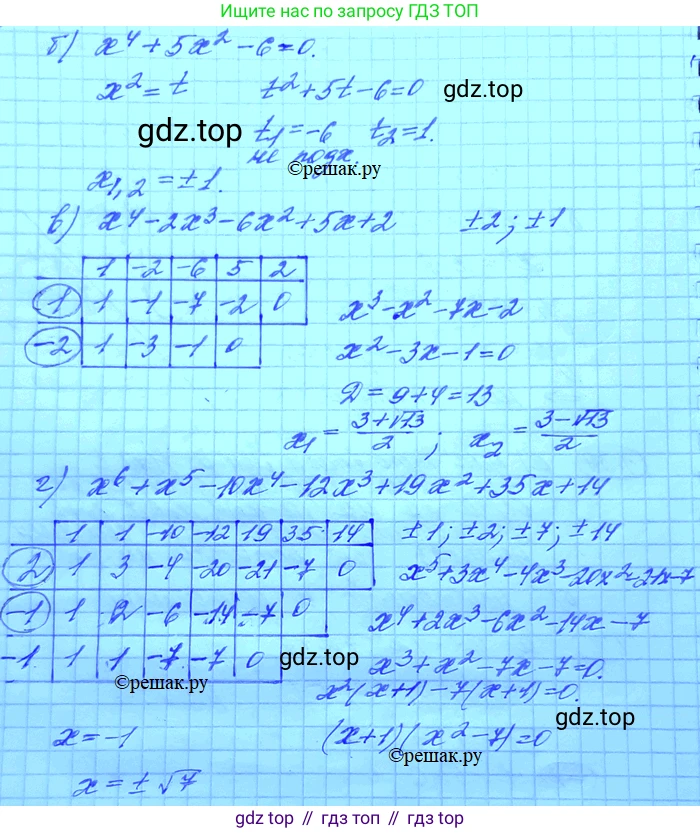 Ищите нас по запросу ГДЗ ТОП
б) x⁴ + 5x² - 6 = 0.
x² = t t² + 5t - 6 = 0 gdz.top
gdz.top t₁ = -6 t₂ = 1.
не подх. ©решак.ру
x₁,₂ = ±1.
в) x⁴ - 2x³ - 6x² + 5x + 2 ±2; ±1
1 -2 -6 5 2
1 1 -1 -7 -2 0 x³ - x² - 7x - 2
-2 1 -3 -1 0 x² - 3x - 1 = 0
Д = 9 + 4 = 13
x₁ = (3+√13)/2; x₂ = (3-√13)/2
©решак.ру
г) x⁶ + x⁵ - 10x⁴ - 12x³ + 19x² + 35x + 14
1 1 -10 -12 19 35 14 ±1; ±2; ±7; ±14
2 1 3 -4 -20 -21 -7 0 x⁵ + 3x⁴ - 4x³ - 20x² - 21x - 7
-1 1 2 -6 -14 -7 0 x⁴ + 2x³ - 6x² - 14x - 7
-1 1 1 -7 -7 0 gdz.top x³ + x² - 7x - 7 = 0.
©решак.ру x²(x+1) - 7(x+1) = 0.
gdz.top
x = -1 (x+1)(x² - 7) = 0
©решак.ру
x = ±√7
gdz top // гдз топ // gdz.top